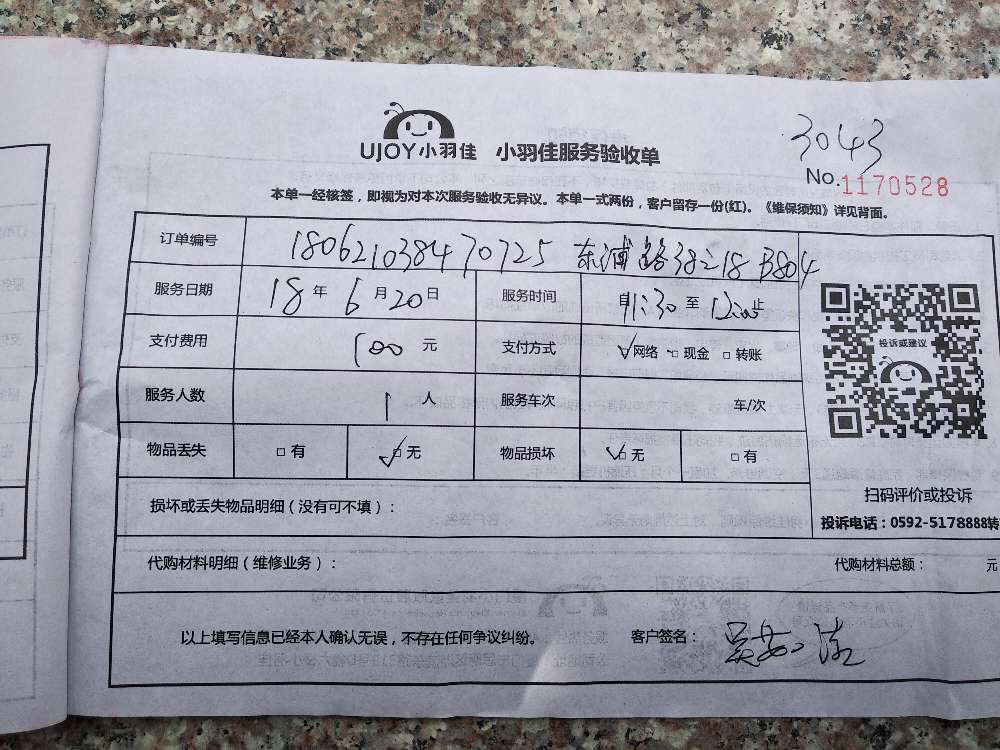 3043
UJOY小羽佳 小羽佳服务验收单
No.1170528
本单一经核签，即视为对本次服务验收无异议。本单一式两份，客户留存一份(红)。《维保须知》详见背面。
订单编号 180621038470725 东浦路38之18 B804
服务日期 18年6月20日 服务时间 自11:30至12:00止
支付费用 100元 支付方式 网络 现金 转账
投诉或建议
服务人数 1人 服务车次 车/次
物品丢失 有 无 物品损坏 无 有
扫码评价或投诉
损坏或丢失物品明细（没有可不填）：
投诉电话：0592-5178888转
代购材料明细（维修业务）： 代购材料总额： 元
以上填写信息已经本人确认无误，不存在任何争议纠纷。 客户签名：